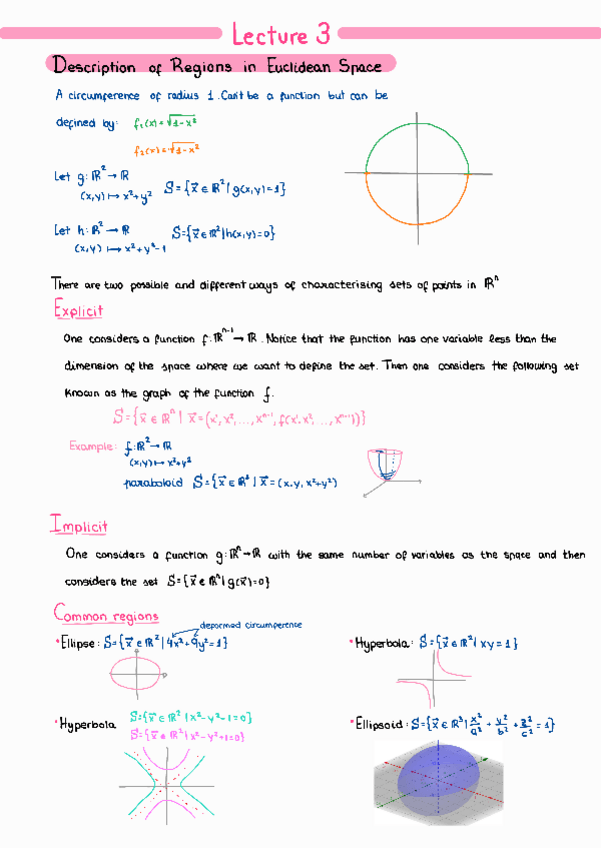 Lecture 3
Description of Regions in Euclidean Space
A circumference of radius 1. Can't be a function but can be
defined by: f₁(x)=√1-x²
f₂(x)=-√1-x²
Let g: ℝ² → ℝ
(x,y) ↦ x²+y²
S={x⃗ ∈ ℝ² | g(x,y)=1}
Let h: ℝ² → ℝ
(x,y) ↦ x²+y²-1
S={x⃗ ∈ ℝ² | h(x,y)=0}
There are two possible and different ways of characterising sets of points in ℝⁿ
Explicit
One considers a function f: ℝⁿ⁻¹ → ℝ. Notice that the function has one variable less than the
dimension of the space where we want to define the set. Then one considers the following set
known as the graph of the function f.
S={x⃗ ∈ ℝⁿ | x⃗ = (x¹, x², ..., xⁿ⁻¹, f(x¹, x², ..., xⁿ⁻¹))}
Example: f: ℝ² → ℝ
(x,y) ↦ x²+y²
paraboloid S={x⃗ ∈ ℝ³ | x⃗ = (x,y, x²+y²)}
Implicit
One considers a function g: ℝⁿ → ℝ with the same number of variables as the space and then
considers the set S={x⃗ ∈ ℝⁿ | g(x⃗)=0}
Common regions
deformed circumference
*Ellipse: S={x⃗ ∈ ℝ² | 4x²+9y²=1}
*Hyperbola: S={x⃗ ∈ ℝ² | xy=1}
*Hyperbola S={x⃗ ∈ ℝ² | x²-y²-1=0}
S={x⃗ ∈ ℝ² | x²-y²+1=0}
*Ellipsoid: S={x⃗ ∈ ℝ³ | x²/a² + y²/b² + z²/c² = 1}